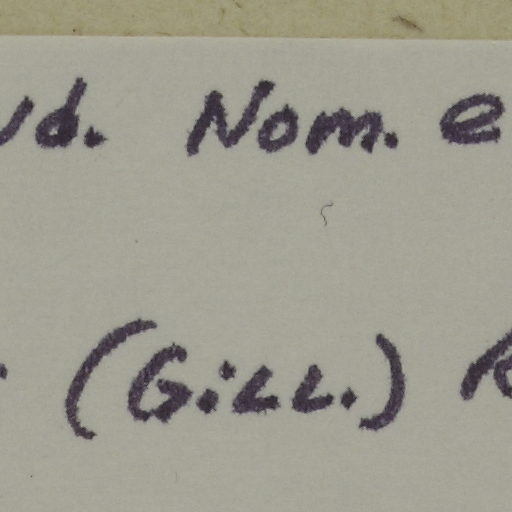 ud. Nom. e
. (Gill.)